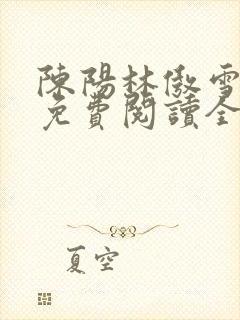 陳陽林傲雪
免費閱讀全
夏空